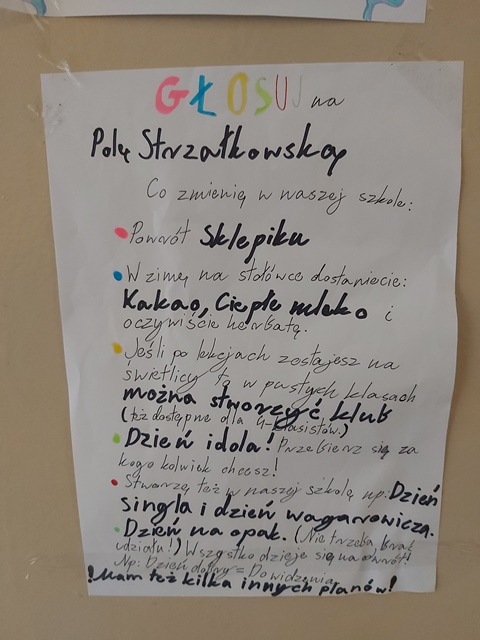 GŁOSUJ na
Polę Strzałkowską
Co zmienię w naszej szkole:
Powrót Sklepiku
W zimę na stołówce dostaniecie:
Kakao, Ciepłe mleko i
oczywiście herbatę.
Jeśli po lekcjach zostajesz na
świetlicy to w pustych klasach
można stworzyć klub
(też dostępne dla 4-klasistów.)
Dzień idola! Przebierz się za
kogo kolwiek chcesz!
Stworzę też w naszej szkole np: Dzień
singla i dzień wagarowicza.
Dzień na opak. (Nie trzeba brać
udziału!) Wszystko dzieje się na odwrót!
Np: Dzień dobry = Do widzenia
!Mam też kilka innych planów!